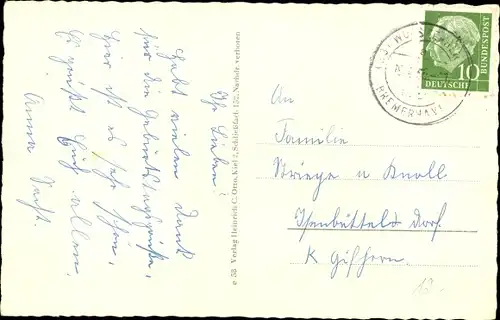 Ihr Lieben!
Habt vielen Dank
für die Geburtstagsgrüße,
hier ist es sehr schön,
Es grüßt Euch allen
Anna
e 58 Verlag Heinrich C. Otto, Kiel 1, Schließfach 152. Nachdr. verboten
BREMERHAV
10
DEUTSCHE
BUNDESPOST
An
Familie
Striege u Knoll
Isenbüttel Dorf.
K Gifhorn.
13.-